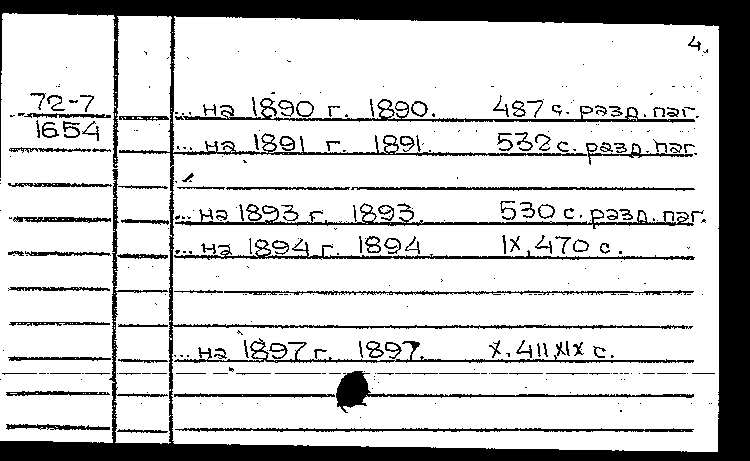 4.
72-7
1654
... на 1890 г. 1890. 487 с. разд. паг.
... на 1891 г. 1891. 532 с. разд. паг.
... на 1893 г. 1893. 530 с. разд. паг.
... на 1894 г. 1894 IX, 470 с.
... на 1897 г. 1897. X, 411, XIX с.